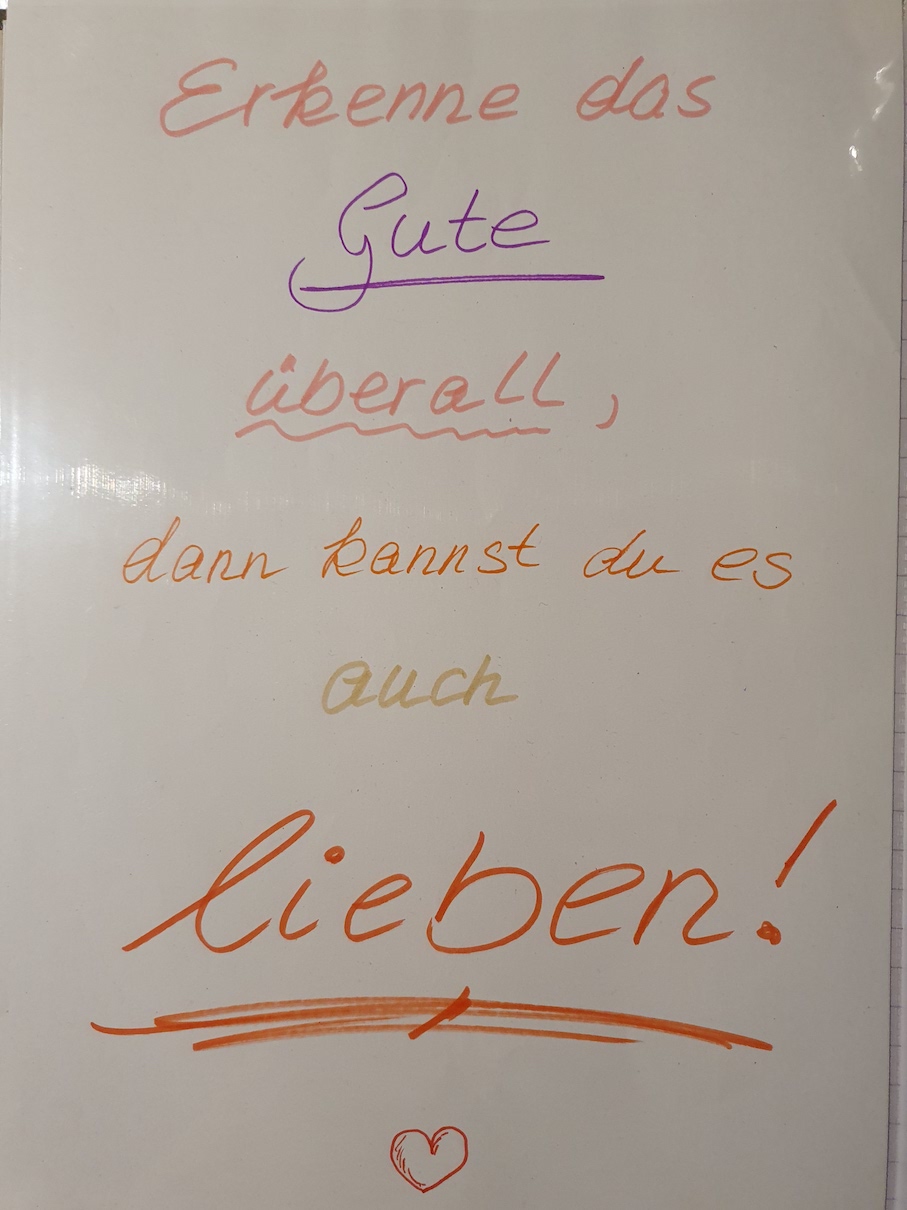 Erkenne das
Gute
überall,
dann kannst du es
auch
lieben!